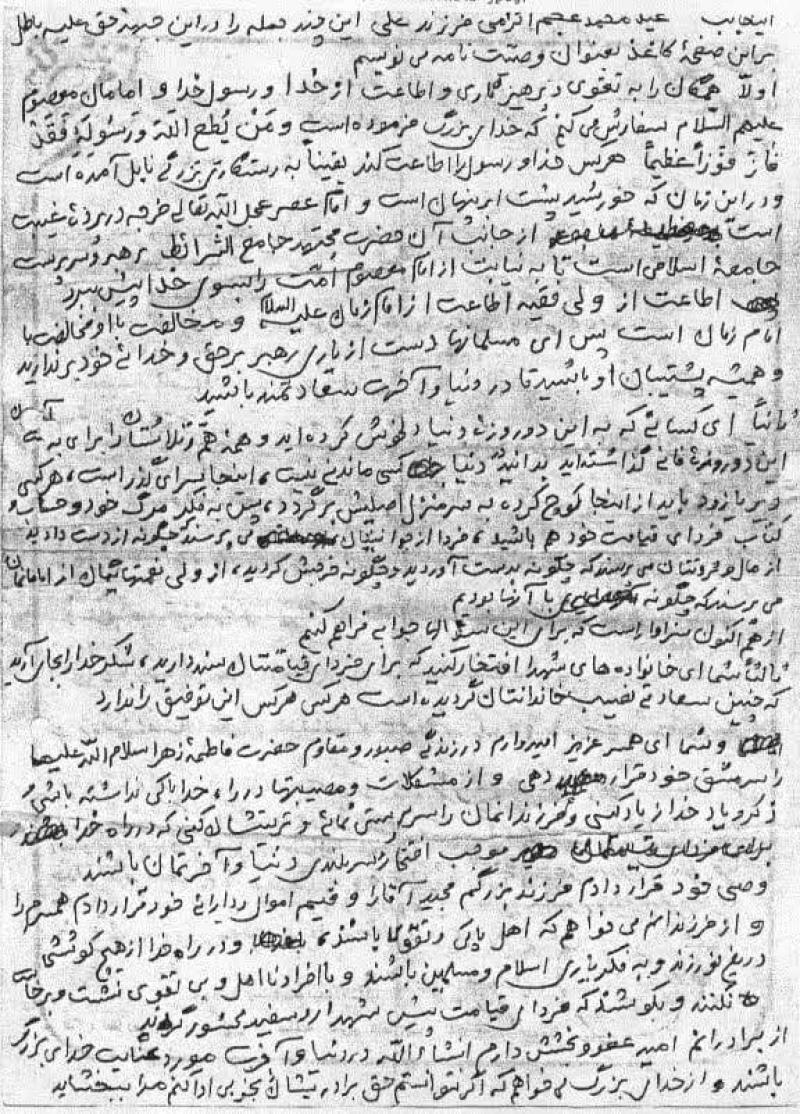 اینجانب عید محمد عجم اکرامی فرزند علی این چند جمله را در این جبهه حق علیه باطل
بر این صفحهٔ کاغذ بعنوان وصیّت نامه می نویسم
اولاً همگان را به تقوی و پرهیزگاری و اطاعت از خدا و رسول خدا و امامان معصوم
علیهم السلام سفارش می کنم که خدای بزرگ فرموده است و مَنْ یُطع اللهَ وَ رَسُولَهُ فَقَدْ
فازَ فَوْزاً عَظیماً هرکس خدا و رسول را اطاعت کند یقیناً به رستگاری بزرگی نایل آمده است
و در این زمان که خورشید پشت ابر پنهان است و امام عصر عجل الله تعالی فرجه در پردهٔ غیبت
است از جانب آن حضرت مجتهد جامع الشرائط رهبر و سرپرست
جامعهٔ اسلامی است تا به نیابت از امام معصوم امّت را بسوی خدا پیش ببرد
اطاعت از ولی فقیه اطاعت از امام زمان علیه السلام و مخالفت با او مخالفت با
امام زمان است پس ای مسلمانها دست از یاری رهبر بر حق و خدائی خود برندارید
و همیشه پشتیبان او باشید تا در دنیا و آخرت سعادتمند باشید
ثانیاً ای کسانی که به این دو روزهٔ دنیا دلخوش کرده اید و همهٔ همّ و تلاشتان را برای
این دو روزهٔ فانی گذاشته اید بدانید دنیا کسی ماندنی نیست، اینجا سرای گذر است، هرکسی
دیر یا زود باید از اینجا کوچ کرده به سرمنزل اصلیش برگردد، پس به فکر مرگ خود و حساب و
کتاب فردای قیامت خود هم باشید، فردا از جوانیتان می پرسند چگونه از دست دادید
از مال و ثروتتان می پرسند که چگونه بدست آوردید و چگونه خرجش کردید، از ولی نعمتهایتان از امامانتان
می پرسند که چگونه با آنها بودیم
از هم اکنون سزاوار است که برای این سئوالها جوابی فراهم کنیم
ثالثاً شما ای خانواده های شهدا افتخار کنید که برای فردای قیامتتان سند دارید، شکر خدا را بجای آرید
که چنین سعادتی نصیب خاندانتان گردیده است هرکس هرکس این توفیق را ندارد
و شما ای همسر عزیز امیدوارم در زندگی صبور و مقاوم حضرت فاطمهٔ زهرا سلام الله علیها
را سرمشق خود قرار دهی و از مشکلات و مصیبتها در راه خدا باکی نداشته باشی
ذکر و یاد خدا زیاد کنی و فرزندانمان را سرپرستی نمائی و تربیتشان کنی که در راه خدا
برای فردای موجب افتخار و سربلندی دنیا و آخرتمان باشند
وصی خود قرار دادم فرزند بزرگم مجید آقا را و قیم اموال و دارائی خود قرار دادم همسرم را
و از فرزندانم می خواهم که اهل پاکی و تقوی باشند، و در راه خدا از هیچ کوششی
دریغ نورزند و به فکر یاری اسلام و مسلمین باشند و با افراد نااهل و بی تقوی نشست و برخاست
نکنند و بکوشند که فردای قیامت پیش شهدا رو سفید محشور گردند
از برادرانم امید عفو و بخشش دارم انشاء الله در دنیا و آخرت مورد عنایت خدای بزرگ
باشند و از خدای بزرگ می خواهم که اگر نتوانستم حق برادریشان بخوبی ادا کنم مرا ببخشاید